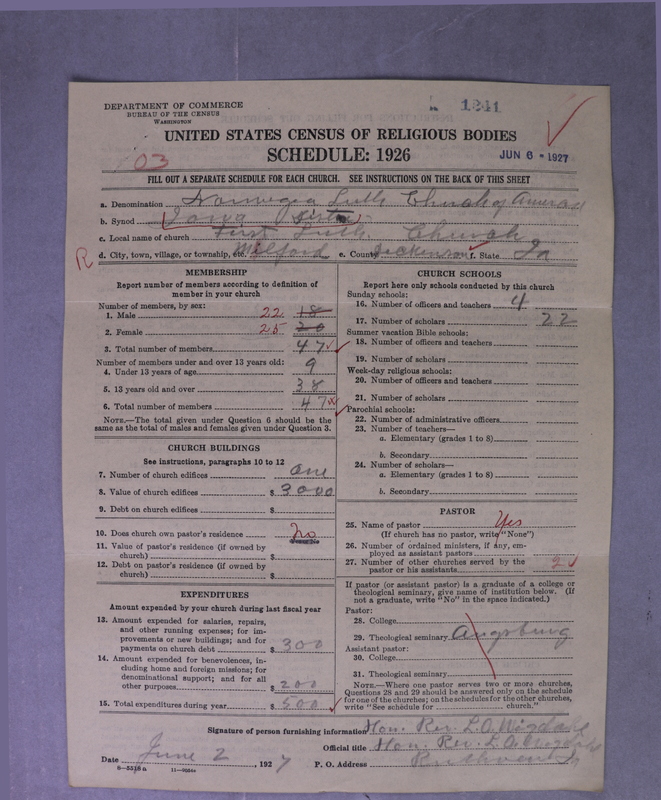 DEPARTMENT OF COMMERCE
BUREAU OF THE CENSUS
WASHINGTON
1241
UNITED STATES CENSUS OF RELIGIOUS BODIES
SCHEDULE: 1926
JUN 6 - 1927
03
FILL OUT A SEPARATE SCHEDULE FOR EACH CHURCH. SEE INSTRUCTIONS ON THE BACK OF THIS SHEET
a. Denomination Norwegia Luth Church of America
b. Synod Iowa
c. Local name of church First Luth. Church
R d. City, town, village, or township, etc. Milford e. County Dickinson f. State Ia
MEMBERSHIP
Report number of members according to definition of member in your church
Number of members, by sex:
1. Male 22 18
2. Female 25 20
3. Total number of members 47
Number of members under and over 13 years old:
4. Under 13 years of age 9
5. 13 years old and over 38
6. Total number of members 47
NOTE.—The total given under Question 6 should be the same as the total of males and females given under Question 3.
CHURCH BUILDINGS
See instructions, paragraphs 10 to 12
7. Number of church edifices One
8. Value of church edifices $ 3000
9. Debt on church edifices $
10. Does church own pastor's residence No
11. Value of pastor's residence (if owned by church) $
12. Debt on pastor's residence (if owned by church) $
EXPENDITURES
Amount expended by your church during last fiscal year
13. Amount expended for salaries, repairs, and other running expenses; for improvements or new buildings; and for payments on church debt $ 300
14. Amount expended for benevolences, including home and foreign missions; for denominational support; and for all other purposes $ 200
15. Total expenditures during year $ 500
CHURCH SCHOOLS
Report here only schools conducted by this church
Sunday schools:
16. Number of officers and teachers 4
17. Number of scholars 22
Summer vacation Bible schools:
18. Number of officers and teachers
19. Number of scholars
Week-day religious schools:
20. Number of officers and teachers
21. Number of scholars
Parochial schools:
22. Number of administrative officers
23. Number of teachers—
a. Elementary (grades 1 to 8)
b. Secondary
24. Number of scholars—
a. Elementary (grades 1 to 8)
b. Secondary
PASTOR
25. Name of pastor Yes
(If church has no pastor, write "None")
26. Number of ordained ministers, if any, employed as assistant pastors
27. Number of other churches served by the pastor or his assistants 2
If pastor (or assistant pastor) is a graduate of a college or theological seminary, give name of institution below. (If not a graduate, write "No" in the space indicated.)
Pastor:
28. College
29. Theological seminary Augsburg
Assistant pastor:
30. College
31. Theological seminary
NOTE.—Where one pastor serves two or more churches, Questions 28 and 29 should be answered only on the schedule for one of the churches; on the schedules for the other churches, write "See schedule for church."
Signature of person furnishing information Hon. Rev. L. O. Wigdahl
Official title Hon. Rev. L. O. Wigdahl
Date June 2, 1927 P. O. Address Ruthven Ia
8—5518 a